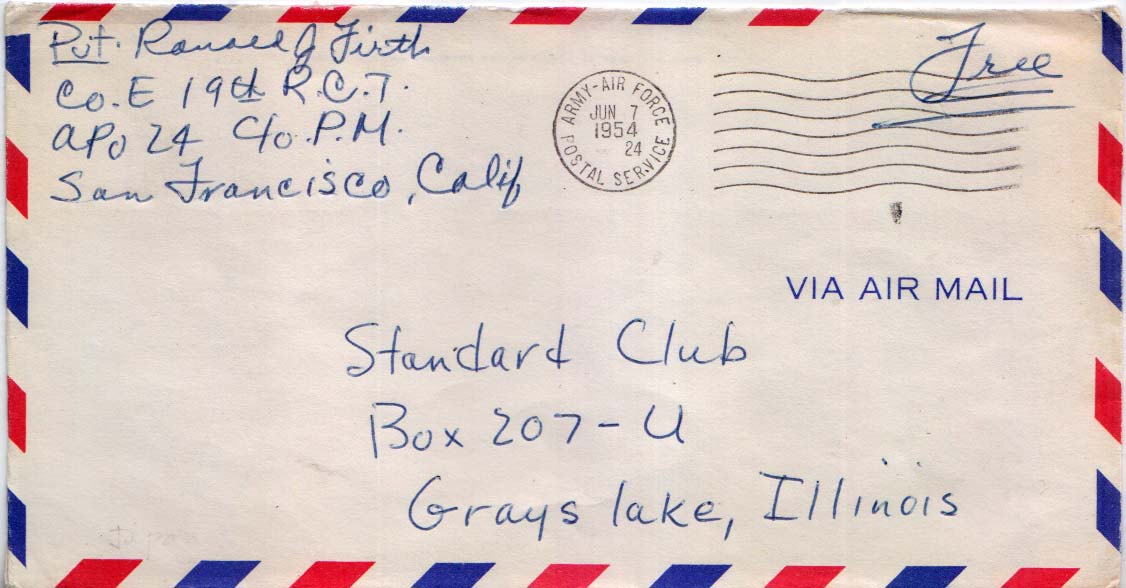 Pvt. Ronald J Firth
Co. E 19th R.C.T.
APO 24 C/o P.M.
San Francisco, Calif
ARMY-AIR FORCE
JUN 7
1954
24
POSTAL SERVICE
Free
VIA AIR MAIL
Standard Club
Box 207-U
Grays lake, Illinois